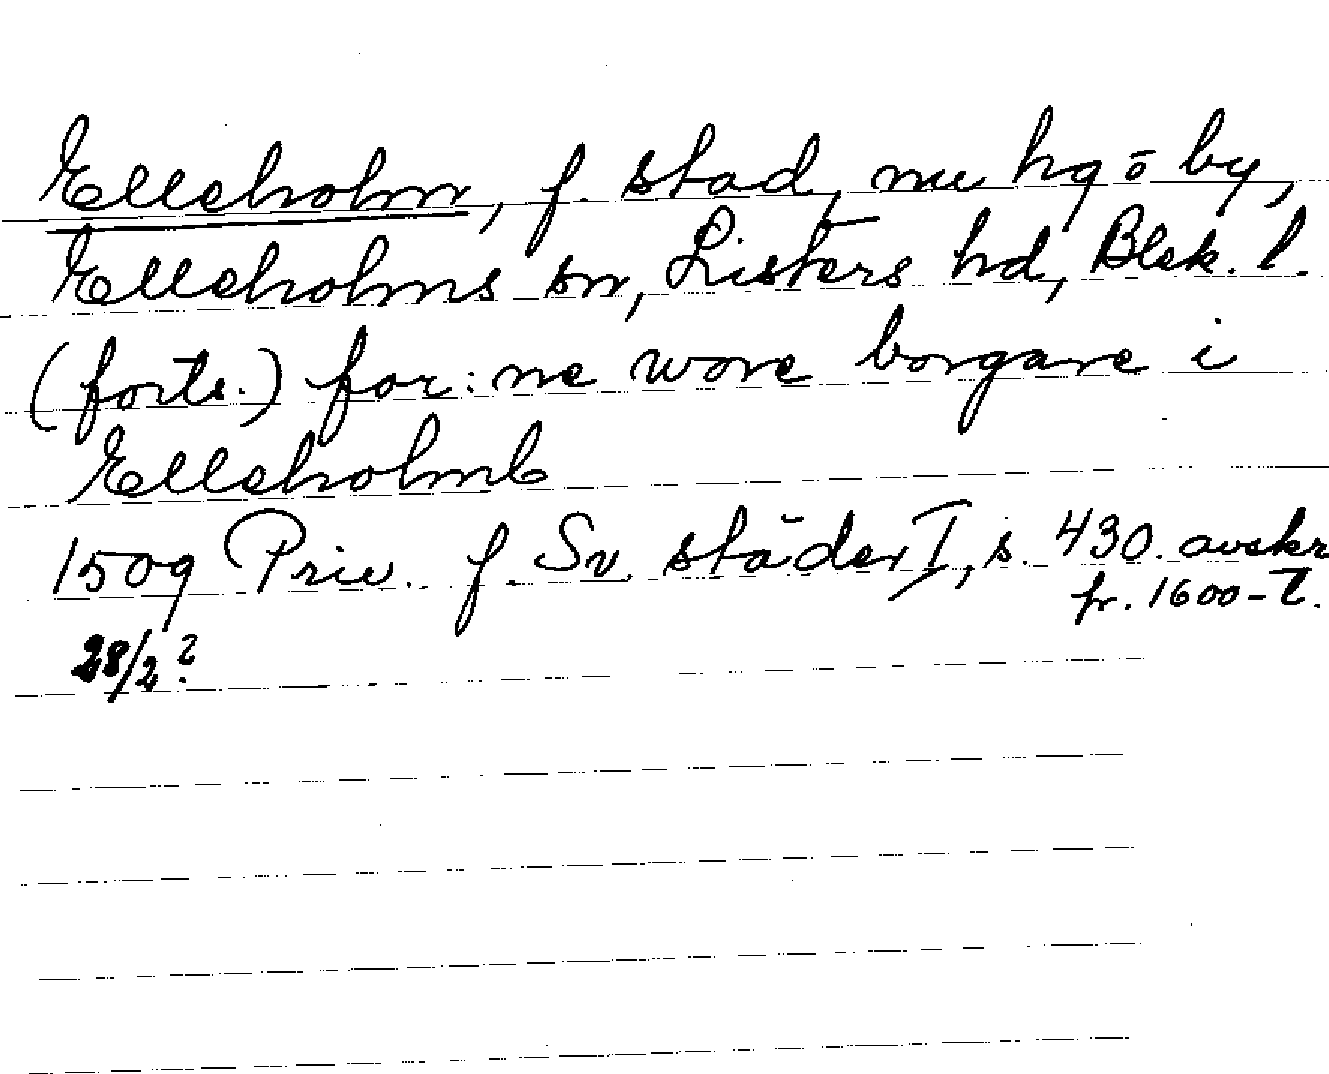 Elleholm, f. stad, nu hg o by,
Elleholms sn, Listers hd, Blek. l.
(forts.) for: ne wore borgare i
Elleholmb
1509 Priv. f. Sv städer I, s. 430. avskr
fr. 1600-t.
28/2?